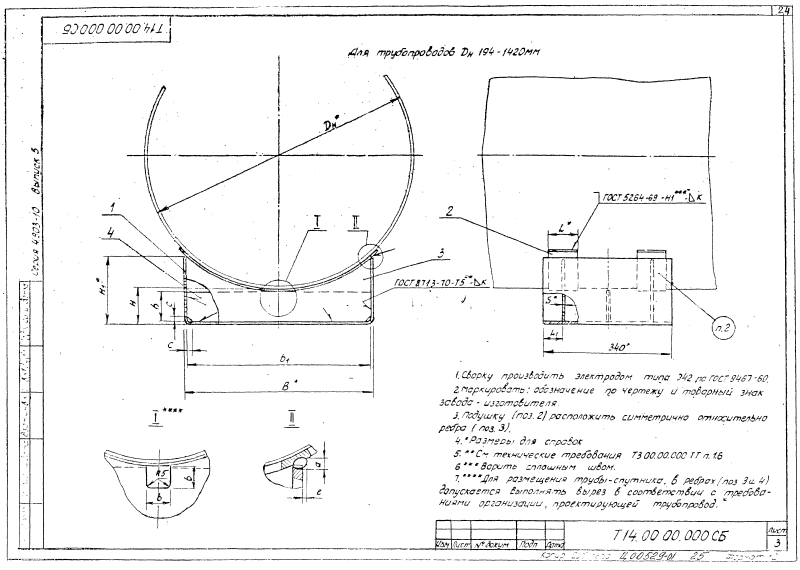 24
Т14.00.00.000СБ
Для трубопроводов Dн 194-1420мм
Серия 4.903-10 Выпуск 5
Dн*
1
4
I
II
3
2
L*
ГОСТ 5264-69-Н1***-⊿К
ГОСТ 8713-70-Т5**-⊿К
H1*
H
h
c
c
b1
B*
S*
L1
340*
п.2
I****
R5
b
b
II
a
e
1. Сварку производить электродом типа Э42 по ГОСТ 9467-60.
2. Маркировать: обозначение по чертежу и товарный знак
завода-изготовителя.
3. Подушку (поз.2) расположить симметрично относительно
ребра (поз.3).
4. * Размеры для справок
5. ** См технические требования Т3.00.00.000 ТТ п.1.6
6 *** Варить сплошным швом.
7. **** Для размещения трубы-спутника, в ребрах (поз 3 и 4)
допускается выполнять вырез в соответствии с требова-
ниями организации, проектирующей трубопровод.
Изм Лист № докум Подп Дата
Т14.00.00.000 СБ
Лист
3
Ц00529-01 25